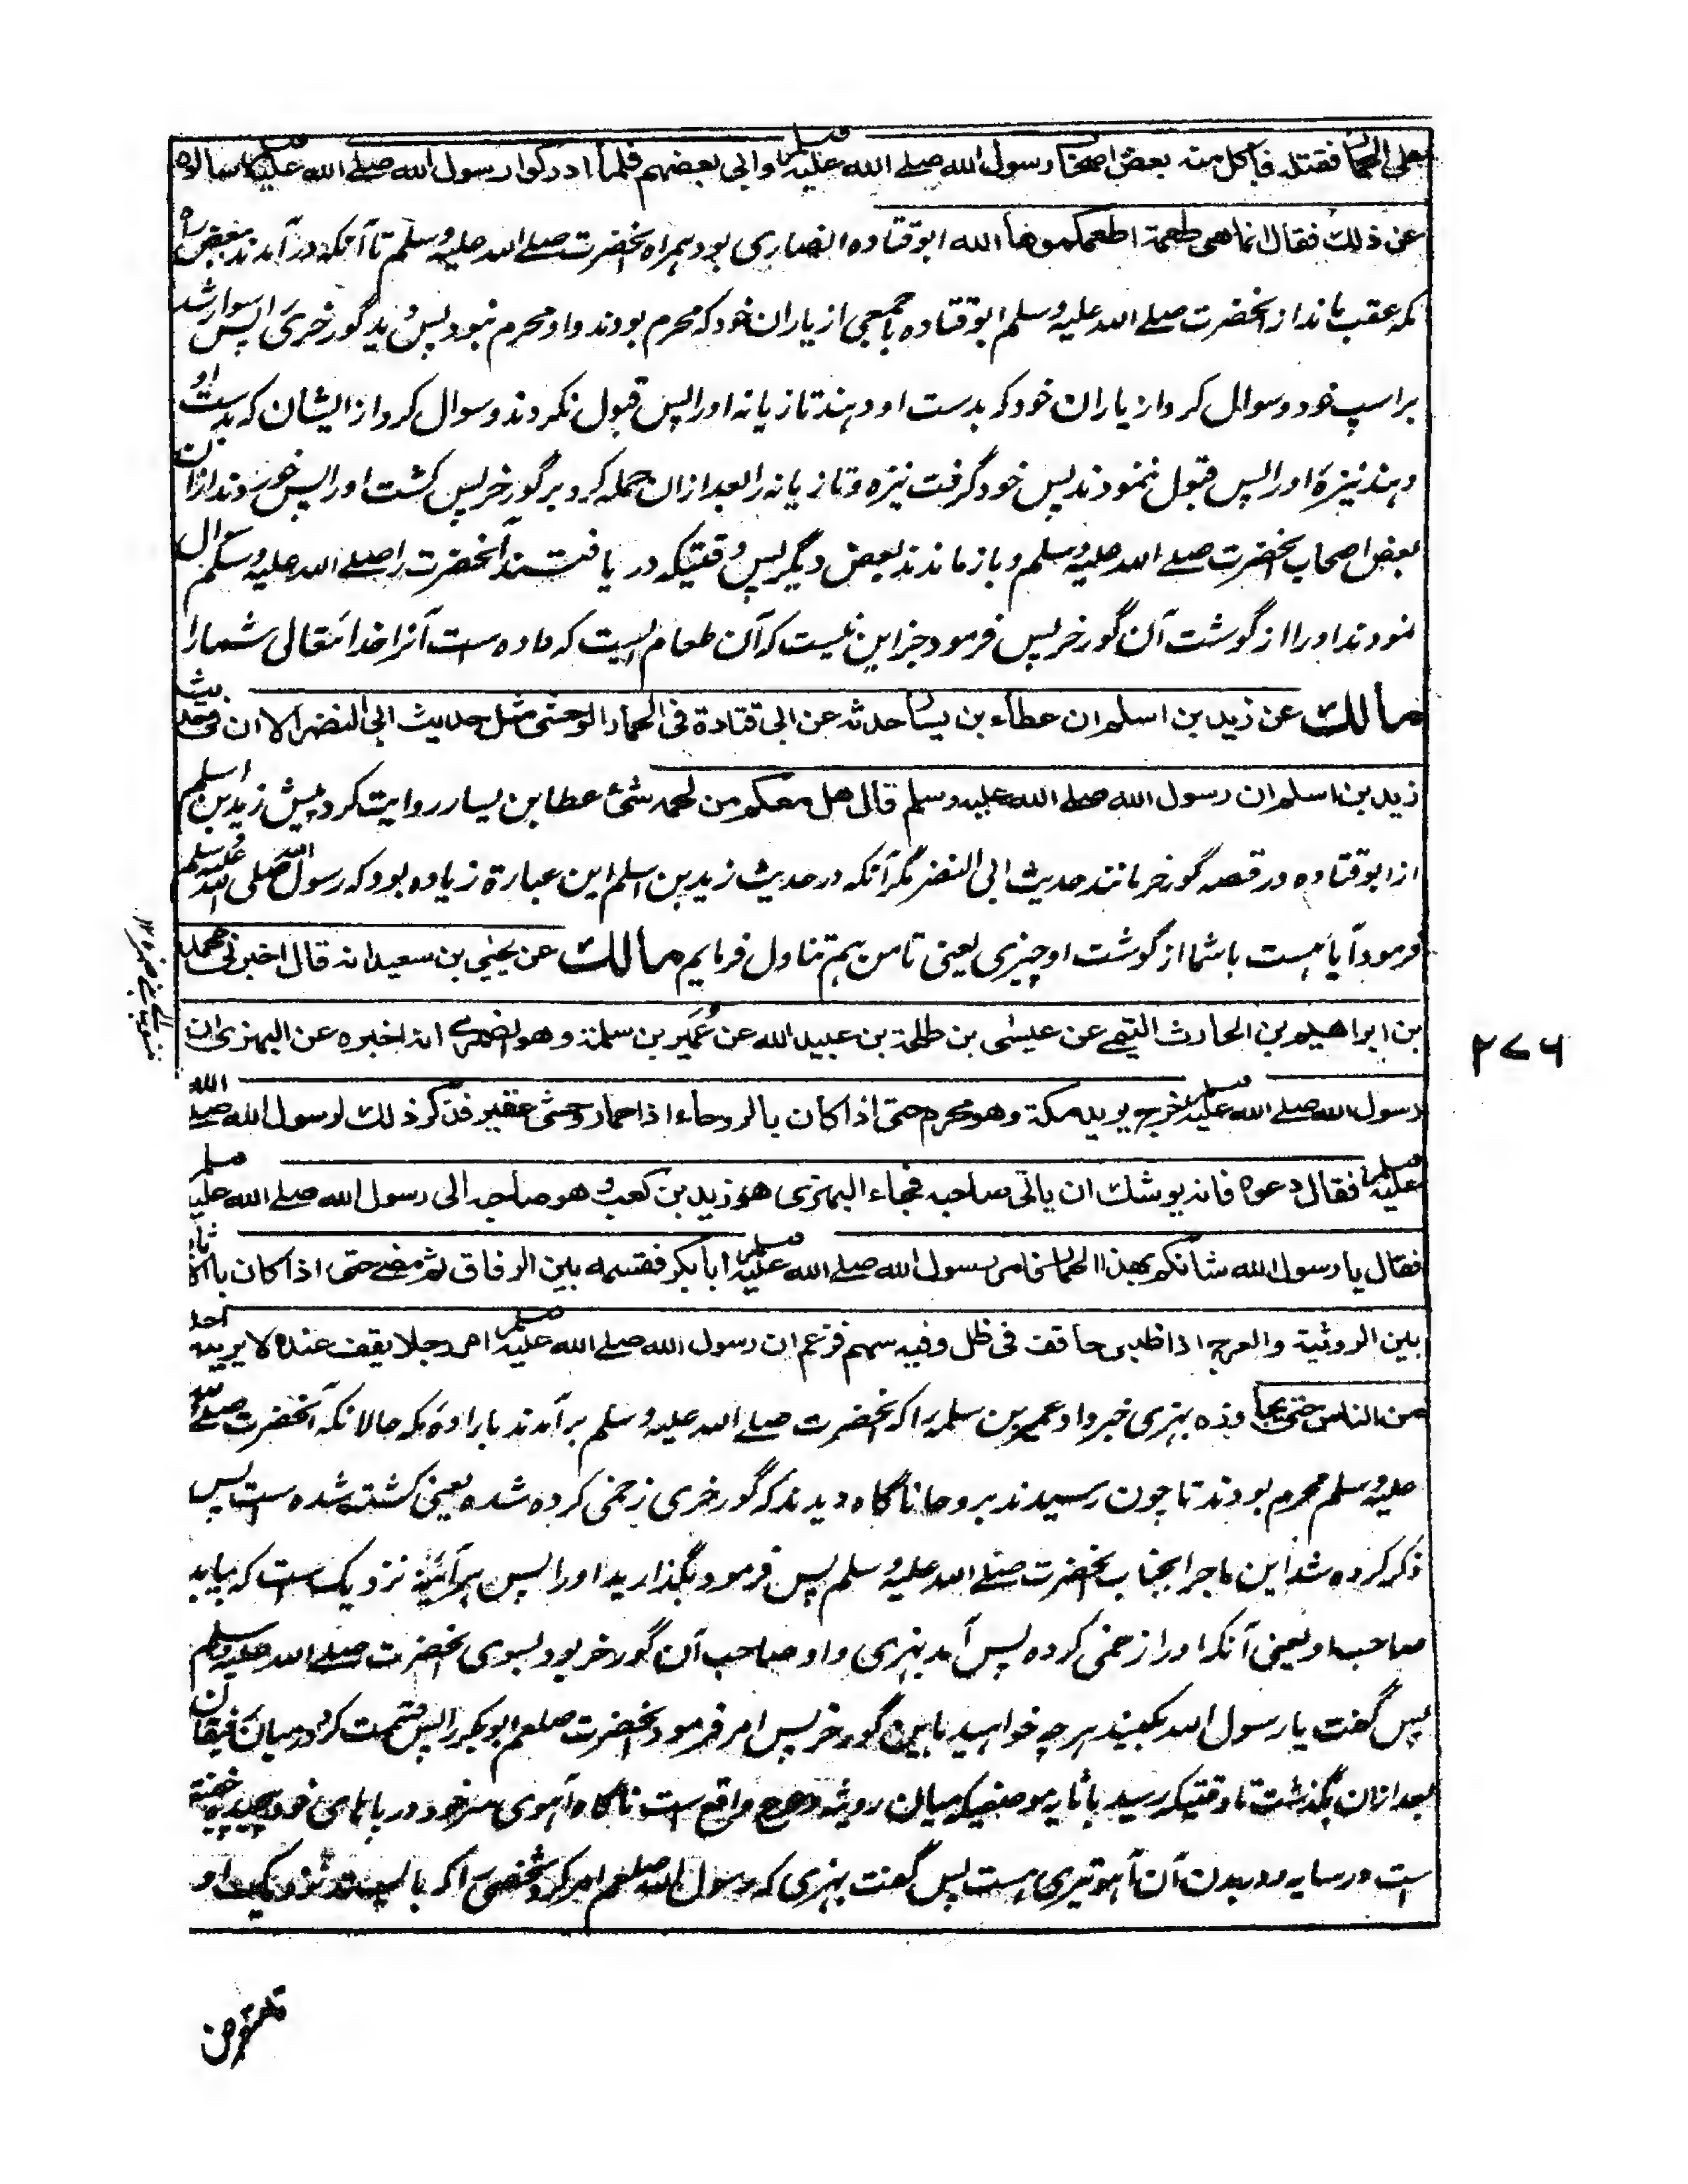 على الحمار فقتله فاكل منه بعض اصحاب رسول الله صلے الله عليه وسلم وابى بعضهم فلما ادركوا رسول الله صلے الله عليه وسلم سالوه
عن ذلك فقال انما هى طعمة اطعمكموها الله ابو قتاده انصاری بود ہمراه آنحضرت صلے الله علیه وسلم تا آنکه درآمدند بعض راه
مکه عقب ماند از آنحضرت صلے الله علیه وسلم ابو قتاده با جمعی از یاران خود که محرم بودند و او محرم نبود پس دید گور خری را پس سوار شد
بر اسپ خود و سوال کرد از یاران خود که بدست او دہند تازیانه او را پس قبول نکردند و سوال کرد از ایشان که بدست او
دہند نیزهٔ او را پس قبول ننمودند پس خود گرفت نیزه و تازیانه را بعد ازان حمله کرد بر گور خر پس کشت او را پس خوردند ازان
بعض اصحاب آنحضرت صلے الله علیه وسلم و باز ماندند بعض دیگر پس وقتیکه دریافتند آنحضرت را صلے الله علیه وسلم سوال
نمودند او را از گوشت آن گور خر پس فرمود جز این نیست که آن طعام ہیست که داده است آنرا خدا تعالی شمارا
مالك عن زيد بن اسلم ان عطاء بن يسار حدثه عن ابى قتادة فى الحمار الوحشى مثل حديث ابى النضر الا ان فى حديث
زيد بن اسلم ان رسول الله صلے الله عليه وسلم قال هل معكم من لحمه شئ عطا بن یسار روایت کرد پیش زید بن اسلم
از ابو قتاده در قصه گور خر مانند حدیث ابی النضر مگر آنکه در حدیث زید بن اسلم این عبارة زیاده بود که رسول الله صلی الله علیه وسلم
فرمود آیا ہست با شما از گوشت او چیزی یعنی تا من ہم تناول فرمایم مالك عن يحيى بن سعيد انه قال اخبرنى محمد
بن ابراهيم بن الحارث التيمى عن عيسى بن طلحة بن عبيد الله عن عُمَير بن سلمة وهو الضمرى انه اخبره عن البهزى ان
رسول الله صلے الله عليه وسلم خرج يريد مكة وهو محرم حتى اذا كان بالروحاء اذا حمار وحشى عقير فذكر ذلك لرسول الله صلے الله
عليه وسلم فقال دعوه فانه يوشك ان ياتى صاحبه فجاء البهزى هو زيد بن كعب و هو صاحبه الى رسول الله صلے الله عليه وسلم
فقال يا رسول الله شانكم بهذا الحمار فامر رسول الله صلے الله عليه وسلم ابا بكر فقسمه بين الرفاق ثم مضے حتى اذا كان بالاثاية
بين الروثية والعرج اذا ظبى حاقف فى ظل وفيه سهم فزعم ان رسول الله صلے الله عليه وسلم امر رجلا يقف عنده لا يريبه احد
من الناس حتى بہزی خبر داد عمیر بن سلمه را که آنحضرت صلے الله علیه وسلم برآمدند بارادهٔ مکه حالانکه آنحضرت صلے الله
علیه وسلم محرم بودند تا چون رسیدند بروحا ناگاه دیدند که گور خری زخمی کرده شده یعنی کشته شده است پس
ذکر کرده شد این ماجرا بجناب آنحضرت صلے الله علیه وسلم پس فرمود بگذارید او را پس ہر آئینه نزدیک است که بیاید
صاحب او یعنی آنکه او را زخمی کرده پس آمد بہزی و او صاحب آن گور خر بود بسوی آنحضرت صلے الله علیه وسلم
پس گفت یا رسول الله بکنید ہرچه خواہید باین گور خر پس امر فرمود آنحضرت صلعم ابو بکر را پس قسمت کرد درمیان رفیقان
بعد ازان بگذشت تا وقتیکه رسید باثایه موضعیکه میان رویثه و عرج واقع است ناگاه آہوی سر خود در پاہای خود پیچیده خفته
است در سایه و در بدن آن آہو تیری ہست پس گفت بہزی که رسول الله صلعم امر کرد شخصی را که بایستد نزدیک او
۲۷۶